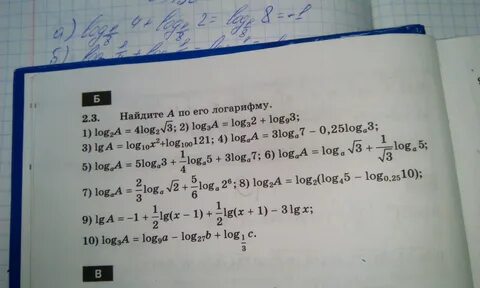 а) log_{1/8} 4 + log_{1/8} 2 = log_{1/8} 8 = -1
Б
2.3. Найдите A по его логарифму.
1) log₂A = 4log₂√3; 2) log₃A = log₃2 + log₉3;
3) lgA = log₁₀x² + log₁₀₀121; 4) logₐA = 3logₐ7 − 0,25logₐ3;
5) logₐA = 5logₐ3 + 1/4 logₐ5 + 3logₐ7; 6) logₐA = logₐ√3 + 1/√3 logₐ5;
7) logₐA = 2/3 logₐ√2 + 5/6 logₐ2⁶; 8) log₂A = log₂(log₄5 − log₀,₂₅10);
9) lgA = −1 + 1/2 lg(x − 1) + 1/2 lg(x + 1) − 3lgx;
10) log₃A = log₉a − log₂₇b + log_{1/3} c.
В